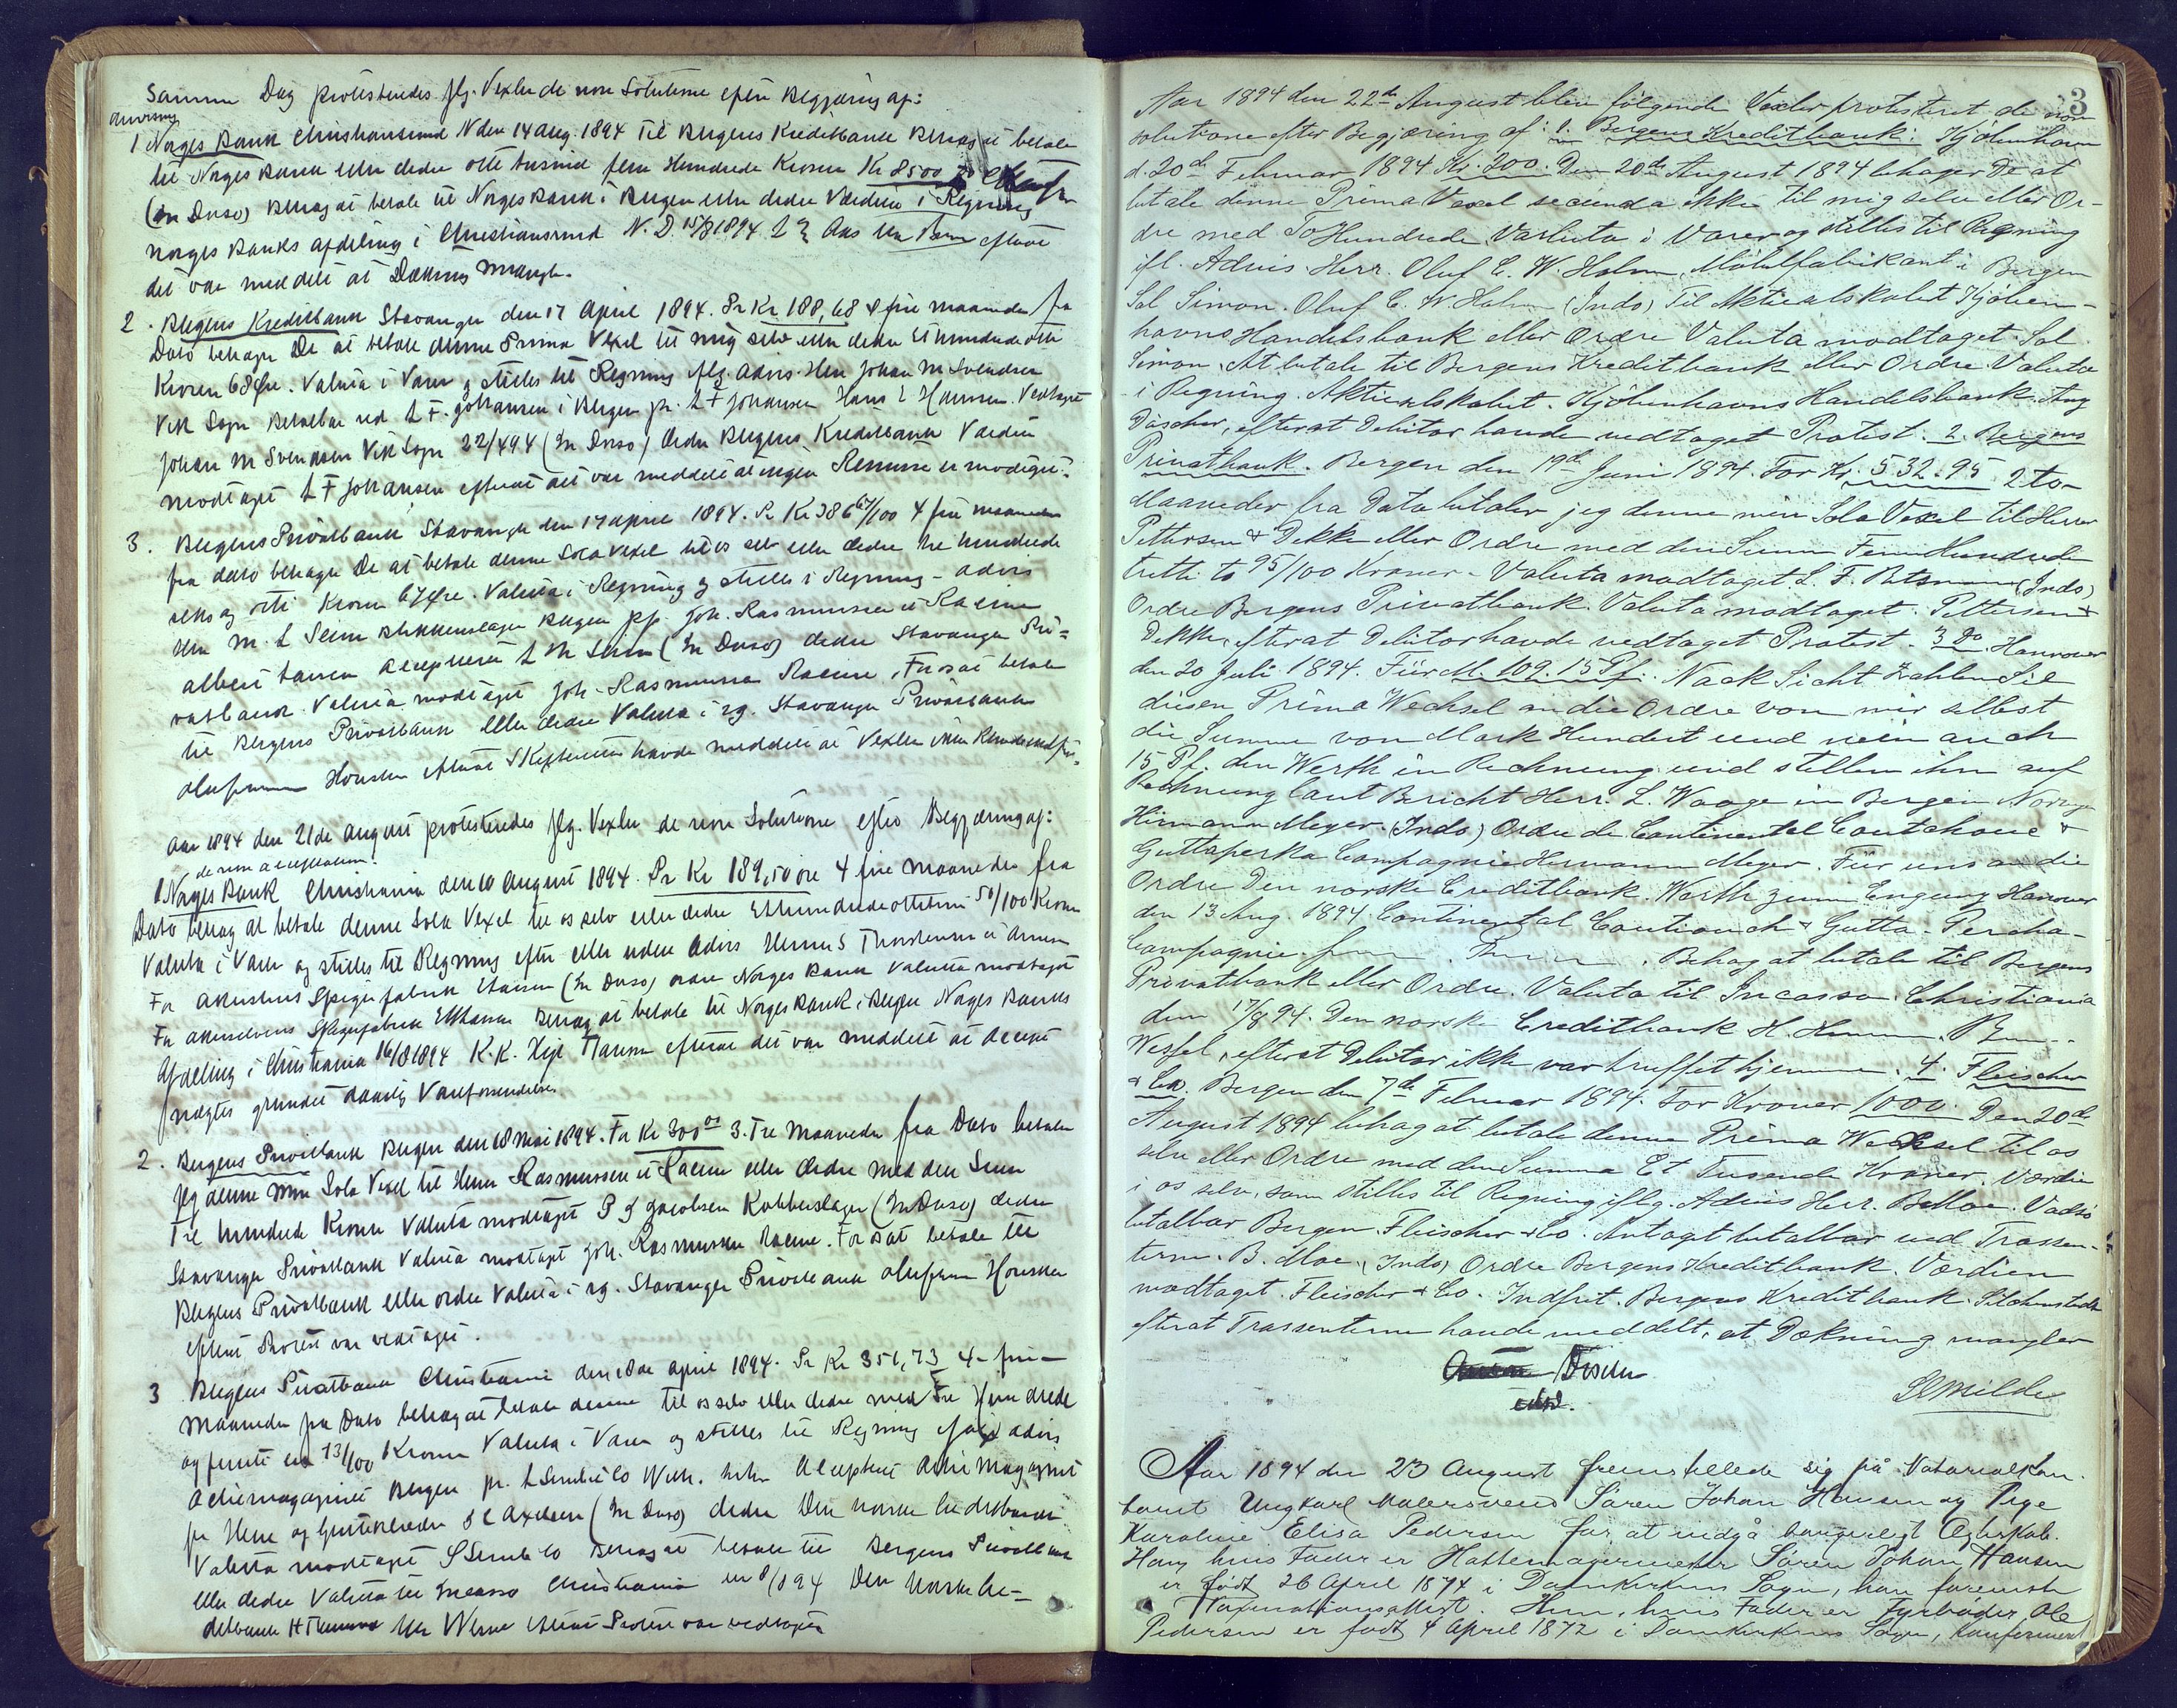 Samme Dag protesteredes flg. Vexler de non Solutione efter Begjæring af:
Anvisning
1 Norges Bank Christiansund N den 14 Aug. 1894 Til Bergens Kreditbank Behag at betale
til Norges Bank eller Ordre otte tusind fem Hundrede Kroner Kr 8500
(In Dosso) Behag at betale til Norges Bank i Bergen eller Ordre Værdien i Regning
Norges Banks Afdeling i Christiansund N. D 15/8 1894 efterat
det var meddelt at Dækning mangler.
2. Bergens Kreditbank Stavanger den 17 April 1894. Pr Kr 188,68 4 fire maaneder fra
Dato behager De at betale denne Prima Vexel til mig selv eller Ordre Et hundrede otte
Kroner 68 Øre. Valuta i Varer og stilles til Regning iflg. Advis. Herr Johan M Svendsen
Vik Sogn Betalbar ved L F. Johansen i Bergen pr. L F Johansen Hans L Hansen. Vedtaget
Johan M Svendsen Vik Sogn 22/4 94 (In Dosso) Ordre Bergens Kreditbank Værdien
modtaget L F Johansen efterat det var meddelt at ingen Remisse er modtaget.
3. Bergens Privatbank Stavanger den 17 April 1894. Pr Kr 386 67/100 4 fire maaneder
fra dato behager De at betale denne Sola Vexel til os selv eller Ordre Tre hundrede
seks og otti Kroner 67 Øre. Valuta i Regning og stilles i Regning - Advis
Herr M. L Seim Blikkenslager Bergen pp. Joh. Rasmussen & Racine
Albert Larsen Accepteret L M Seim (In Dosso) Ordre Stavanger Pri=
vatbank. Valuta modtaget Joh. Rasmussen Racine, For os at betale
til Bergens Privatbank eller Ordre Valuta i rg. Stavanger Privatbank
Olufsen Housken efterat havde meddelt at Vexlen ikke
Aar 1894 den 21de August protesteredes flg. Vexler de non Solutione efter Begjæring af:
de non acceptation:
1 Norges Bank Christiania den 10 August 1894. Pr Kr 189,50 øre 4 fire maaneder fra
Dato behag at betale denne Sola Vexel til os selv eller Ordre Ethundredeottini 50/100 Kroner
Valuta i Varer og stilles til Regning efter eller uden Advis Herrer S Thorstensen & Arnesen
For Akershus Spigerfabrik Hansen (In Dosso) Ordre Norges Bank Valuta modtaget
For Akerselvens Spigerfabrik Behag at betale til Norges Bank i Bergen Norges Banks
Afdeling i Christiania 16/8 1894 K.K. efterat det var meddelt at Accept
nægtes grundet Vareforsendelse
2. Bergens Privatbank Bergen den 18 Mai 1894. For Kr 300 00 3. Tre Maaneder fra Dato betaler
Jeg denne min Sola Vexel til Herrer Rasmussen & Racine eller Ordre med den Sum
Tre hundrede Kroner Valuta modtaget P J Jacobsen Kobberslager (In Dosso) Ordre
Stavanger Privatbank Valuta modtaget Joh. Rasmussen Racine. For os at betale til
Bergens Privatbank eller ordre Valuta i rg. Stavanger Privatbank Olufsen Housken
efterat Protest var vedtaget.
3 Bergens Privatbank Christiania den 18de April 1894. Pr Kr 351,73 4 - fire -
Maaneder fra Dato behag at betale denne til os selv eller Ordre med Tre Hundrede
og femti en 73/100 Kroner Valuta i Varer og stilles til Regning ifølge advis
Actiemagazinet Bergen pr. L Semb & Co Accepteret Actie Magazinet
for Herre og Gutteklæder S C Axelsen (In Dosso) Ordre Den norske Creditbank
Valuta modtaget L Semb & Co Behag at betale til Bergens Privatbank
eller Ordre Valuta til Incasso Christiania den 8/8 94 Den norske Cre-
ditbank H efterat Protest var vedtaget
3
Aar 1894 den 22de August blev følgende Vexler protesteret de non
solutione efter Begjæring af: 1. Bergens Kreditbank: Kjøbenhavn
d. 20de Februar 1894 Kr. 200. Den 20de August 1894 behager De at
betale denne Prima Vexel secunda ikke til mig selv eller Or-
dre med To Hundrede Valuta i Varer og stilles til Regning
ifl. Advis. Herr. Oluf C. W. Holm, Møbelfabrikant i Bergen
Sal Simon. Oluf C. W. Holm (Indo) Til Aktieselskabet Kjøben-
havns Handelsbank eller Ordre Valuta modtaget Sal
Simon. At betale til Bergens Kreditbank eller Ordre. Valuta
i Regning. Aktieselskabet. Kjøbenhavns Handelsbank. Aug
Däscher, efterat Debitor havde vedtaget Protest. 2. Bergens
Privatbank. Bergen den 19de Juni 1894. For Kr. 532.95 2 to
Maaneder fra Dato betaler jeg denne min Sola Vexel til Herrer
Pettersen & Dekke eller Ordre med den Summ Fem Hundrede
tretti to 95/100 Kroner. Valuta modtaget L. F. (Indo)
Ordre Bergens Privatbank. Valuta modtaget. Pettersen &
Dekke, efterat Debitor havde vedtaget Protest. 3 Do. Hannover
den 20 Juli 1894. Für M. 109.15 Pf. Nach Sicht Zahlen Sie
diesen Prima Wechsel an die Ordre von mir selbst
die Summe von Mark Hundert und nein auch
15 Pf. den Werth in Rechnung und stellen ihn auf
Rechnung laut Bericht Herr. L. Waage in Bergen Norwegen
Hermann Meyer. (Indo) Ordre de Continental Coutchouc &
Guttaperka Compagnie Hermann Meyer. Für uns an die
Ordre Den norske Creditbank. Werth zum Eingang Hanover
den 13 Aug. 1894. Continental Coutiouch & Gutta-Percha-
Compagnie. Behag at betale til Bergens
Privatbank eller Ordre. Valuta til Incasso. Christiania
den 17/8 94. Den norske Creditbank H.
Wesfel, efterat Debitor ikke var truffet hjemme. 4. Fleischer
& Co. Bergen den 7de Februar 1894. For Kroner 1000. Den 20de
August 1894 behag at betale denne Prima Wechsel til os
selv eller Ordre med den Summa Et Tusende Kroner. Værdien
i os selv, som stilles til Regning iflg. Advis Herr. B Moe. Vadsø
betalbar Bergen. Fleischer & Co. Antaget betalbar ved Trassen-
terne. B. Moe. (Indo) Ordre Bergens Kreditbank. Værdien
modtaget. Fleischer & Co. Indfriet. Bergens Kreditbank.
efterat Trassenterne havde meddelt, at Dækning mangler
Aar 1894 den 23 August fremstillede sig på Notarialkon-
toret Ungkarl Malersvend Søren Johan Hansen og Pige
Karoline Elisa Pedersen for at indgå borgerligt Ægteskab.
Han, hvis Fader er Hattemagermester Søren Johan Hansen
er født 26 April 1874 i Domkirkens Sogn, han foreviste
Vaxinationsattest. Hun, hvis Fader er Fyrbøder Ole
Pedersen er født 4 April 1872 i Domkirkens Sogn, Konfirmeret